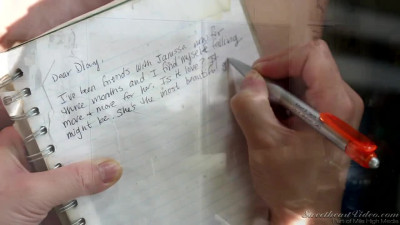 Dear Diary,
I've been friends with only for
three months, and I find myself falling
more + more for her. Is it love? It
might be. She's the most beautiful
SweetheartVideo.com
Part of Mile High Media